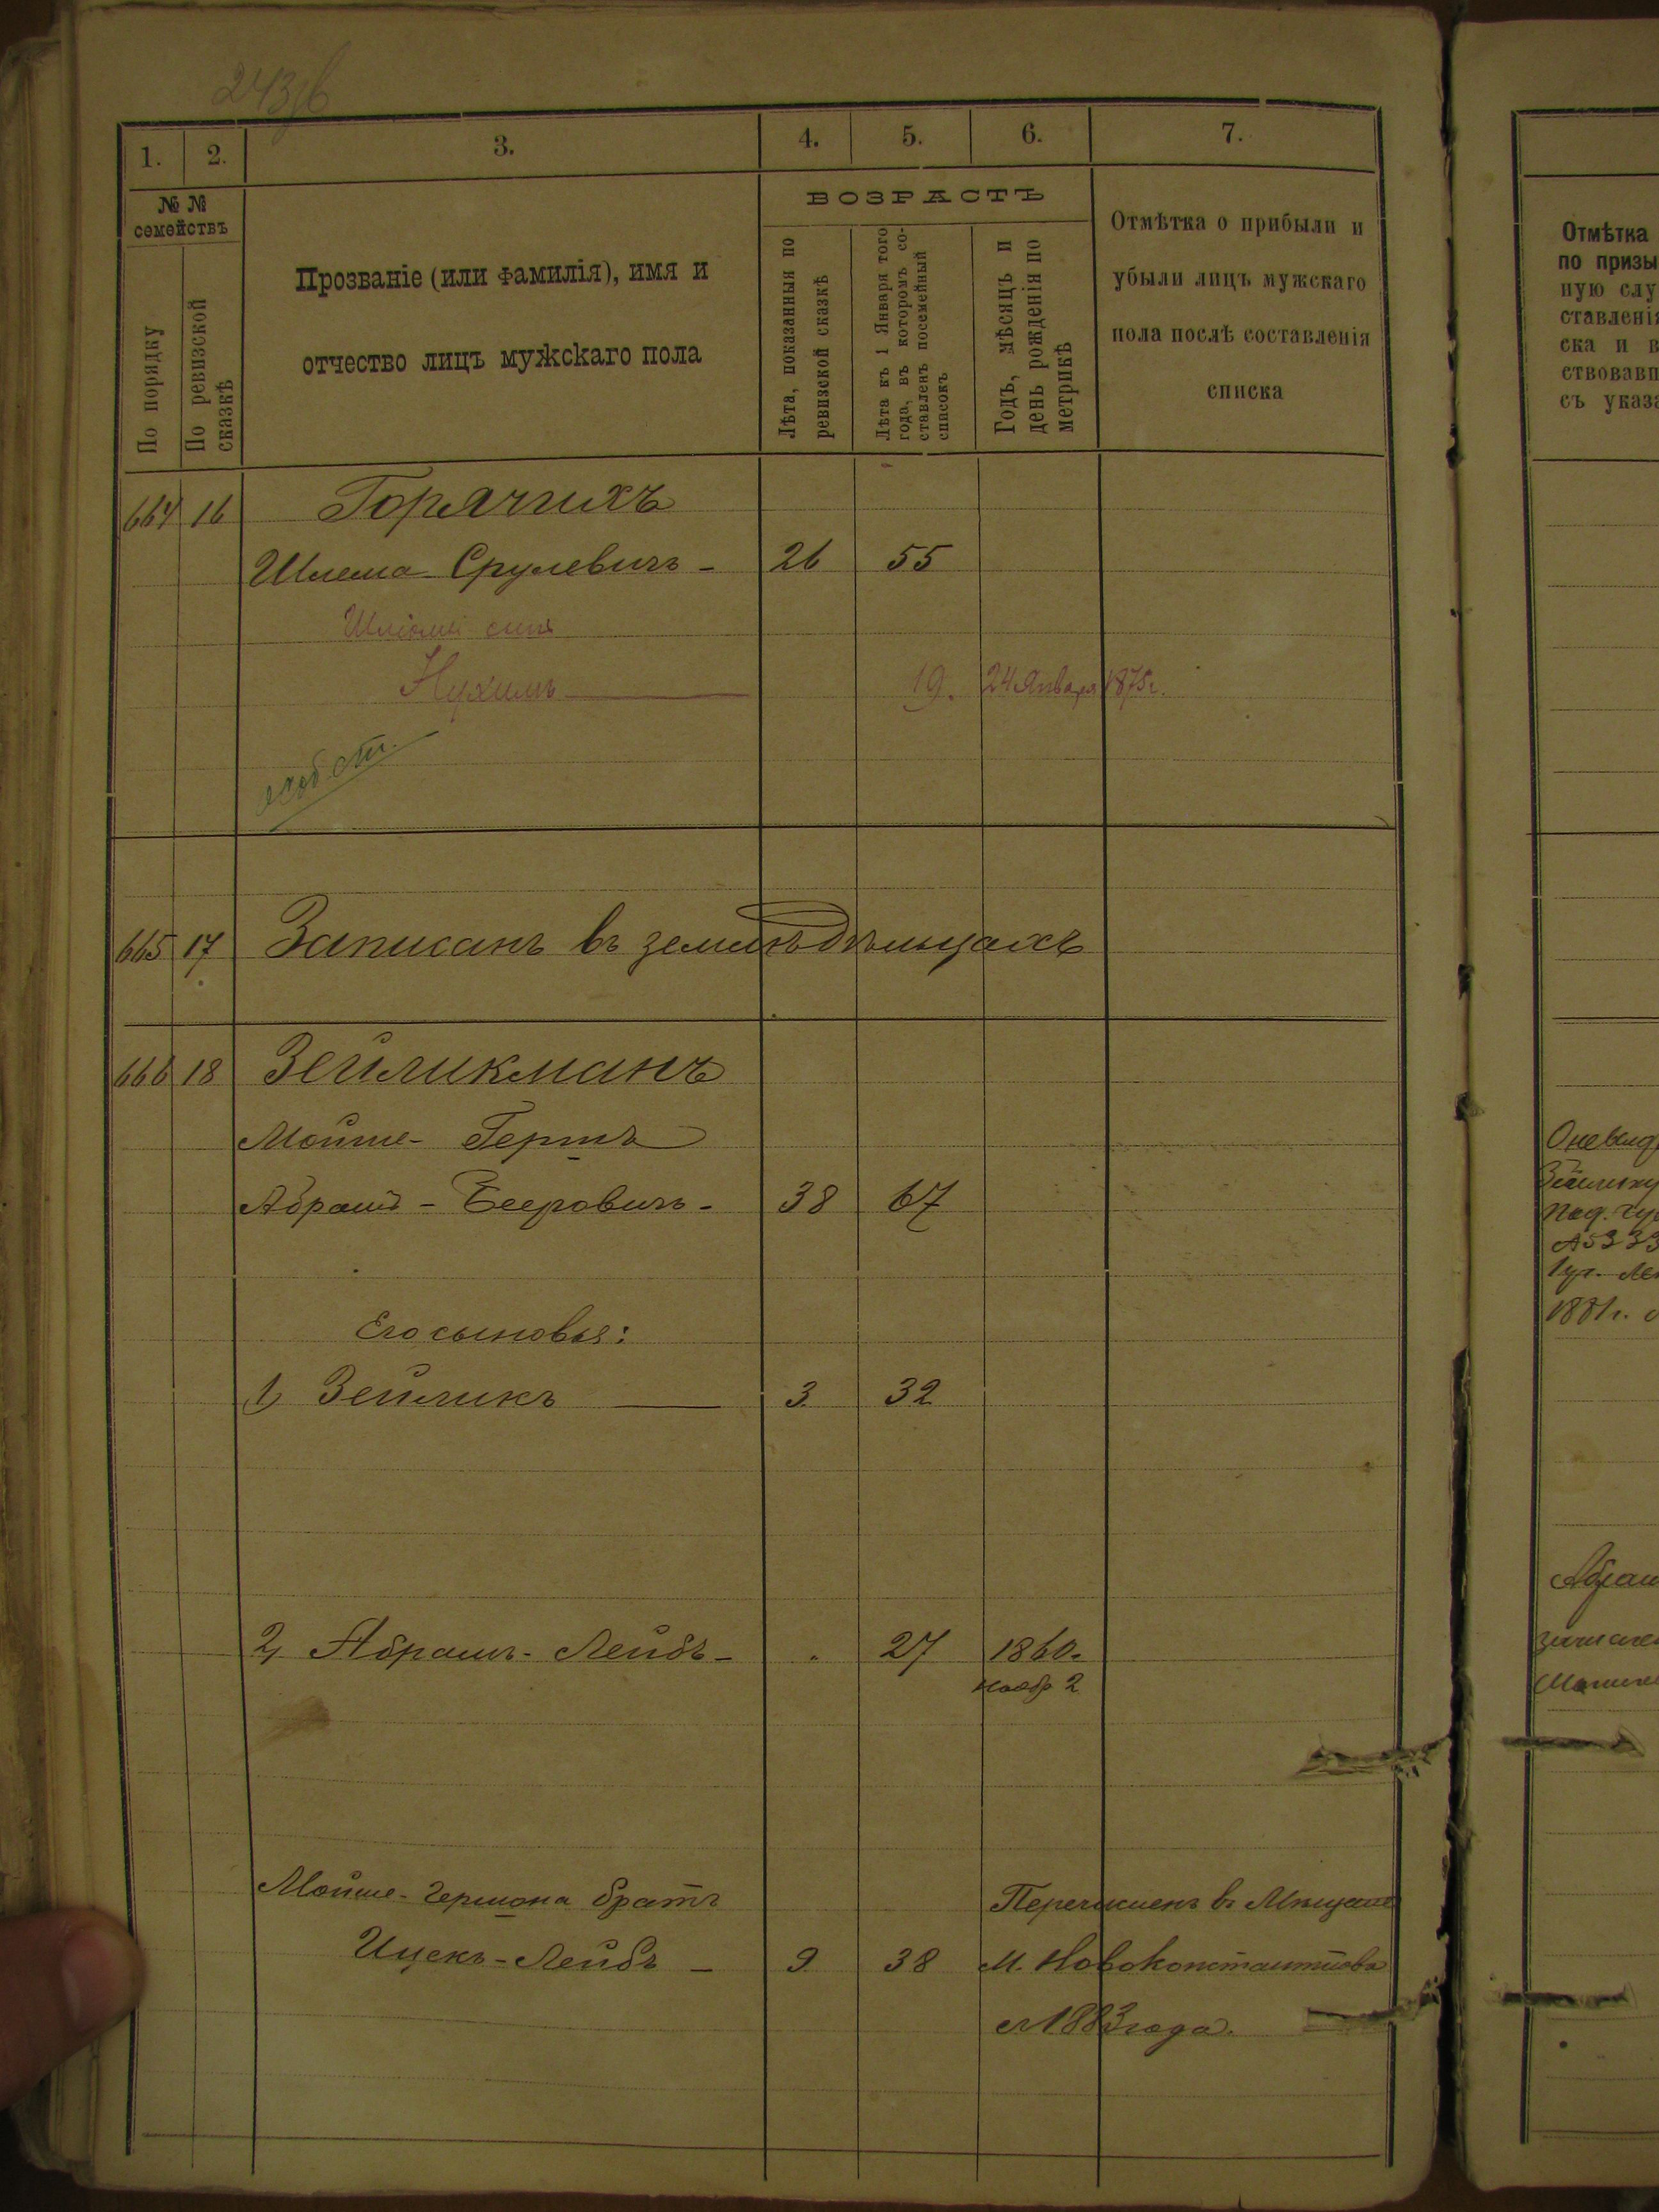 243об
1. 2. 3. 4. 5. 6. 7.
№ №
семействъ
По порядку
По ревизской
сказкѣ
Прозваніе (или фамилія), имя и
отчество лицъ мужскаго пола
ВОЗРАСТЪ
Лѣта, показанныя по
ревизской сказкѣ
Лѣта къ 1 Января того
года, въ которомъ со-
ставленъ посемейный
списокъ
Годъ, мѣсяцъ и
день рожденія по
метрикѣ
Отмѣтка о прибыли и
убыли лицъ мужскаго
пола послѣ составленія
списка
664 16 Горячихъ
Шлема Срулевичъ - 26 55
Шлёмы сынъ
Нухимъ 19. 24 Января 1875г.
665 17 Записанъ въ земледѣльцахъ
666 18 Зейликманъ
Мойше- Гершъ
Абрамъ - Беровичъ - 38 67
Его сыновья:
1) Зейликъ 3 32
2) Абрамъ- Лейбъ - . 27 1860.
Нояб 2
Мойше- Гершона братъ Перечисленъ въ Мѣщане
Ицекъ-Лейбъ - 9 38 М. Новоконстантинова
съ 1883 года.
Отмѣтка
по призы
ную слу
ставлені
ска и в
ствовавш
съ указа
1881г.
Абрам